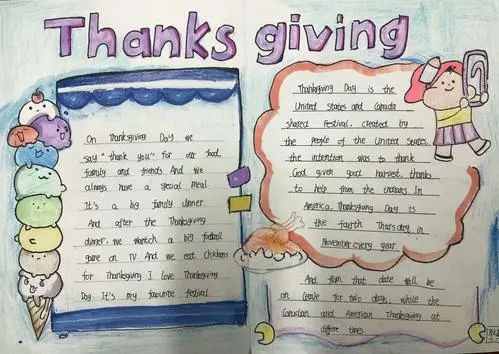 Thanks giving
On Thanksgiving Day we
say "thank you" for our food,
family and friends And we
always have a special meal.
It's a big family dinner.
And after the Thanksgiving
dinner, we watch a big football
game on TV And we eat chickens
for Thanksgiving I love Thanksgiving
Day. It's my favourite festival
Thanksgiving Day is the
United States and Canada
shared Festival, created by
the people of the United States,
the intention was to thank
God given good harvest, thanks
to help from the indians. In
America, Thanksgiving Day is
the fourth Thursday in
November every year.
And from that date will be
on leave for two days, while the
Canadian and American Thanksgiving at
different times